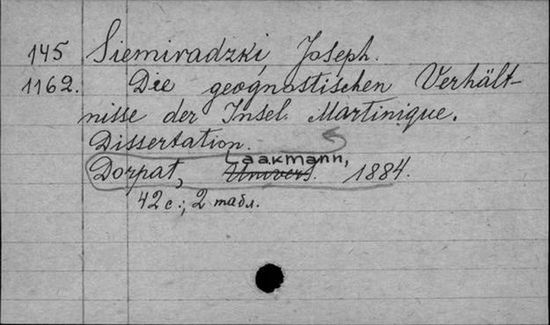 145 Siemiradzki, Joseph.
1162. Die geognostischen Verhält-
nisse der Insel Martinique.
Dissertation.
Laakmann,
Dorpat, Univers. 1884.
42 с.; 2 табл.